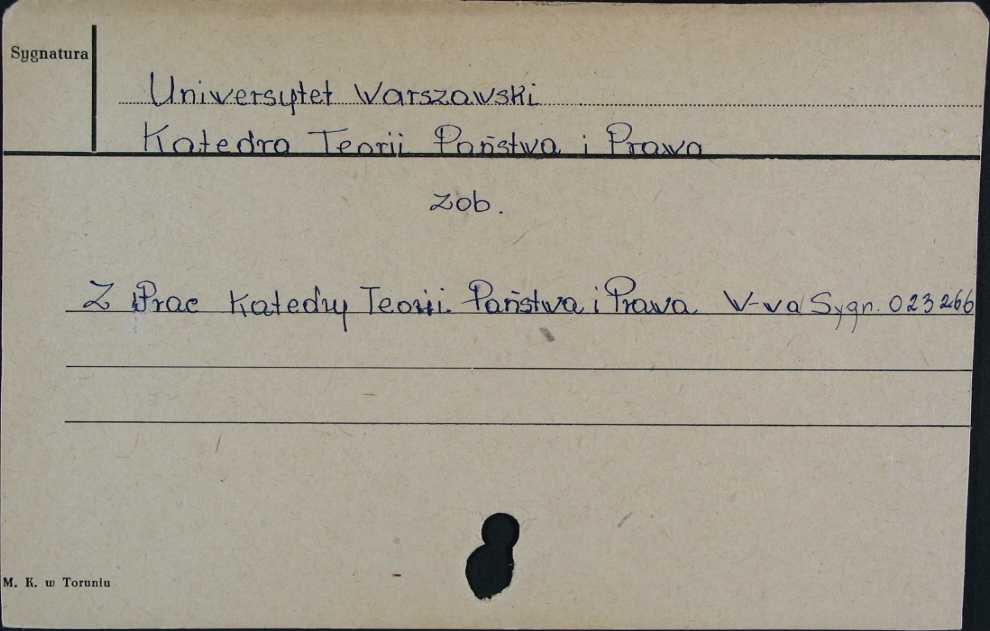 Sygnatura
Uniwersytet Warszawski
Katedra Teorii Państwa i Prawa
zob.
Z Prac Katedry Teorii Państwa i Prawa W-wa Sygn. 023266
M. K. w Toruniu